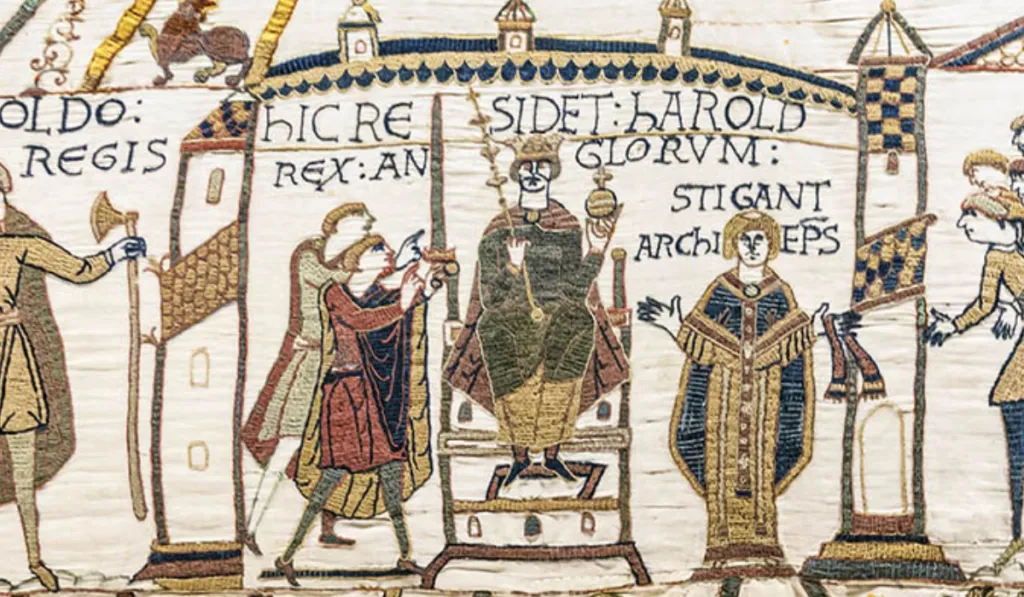 OLDO:
REGIS
HIC RE SIDET: HAROLD
REX: AN GLORVM:
STIGANT
ARCHI EP̅S